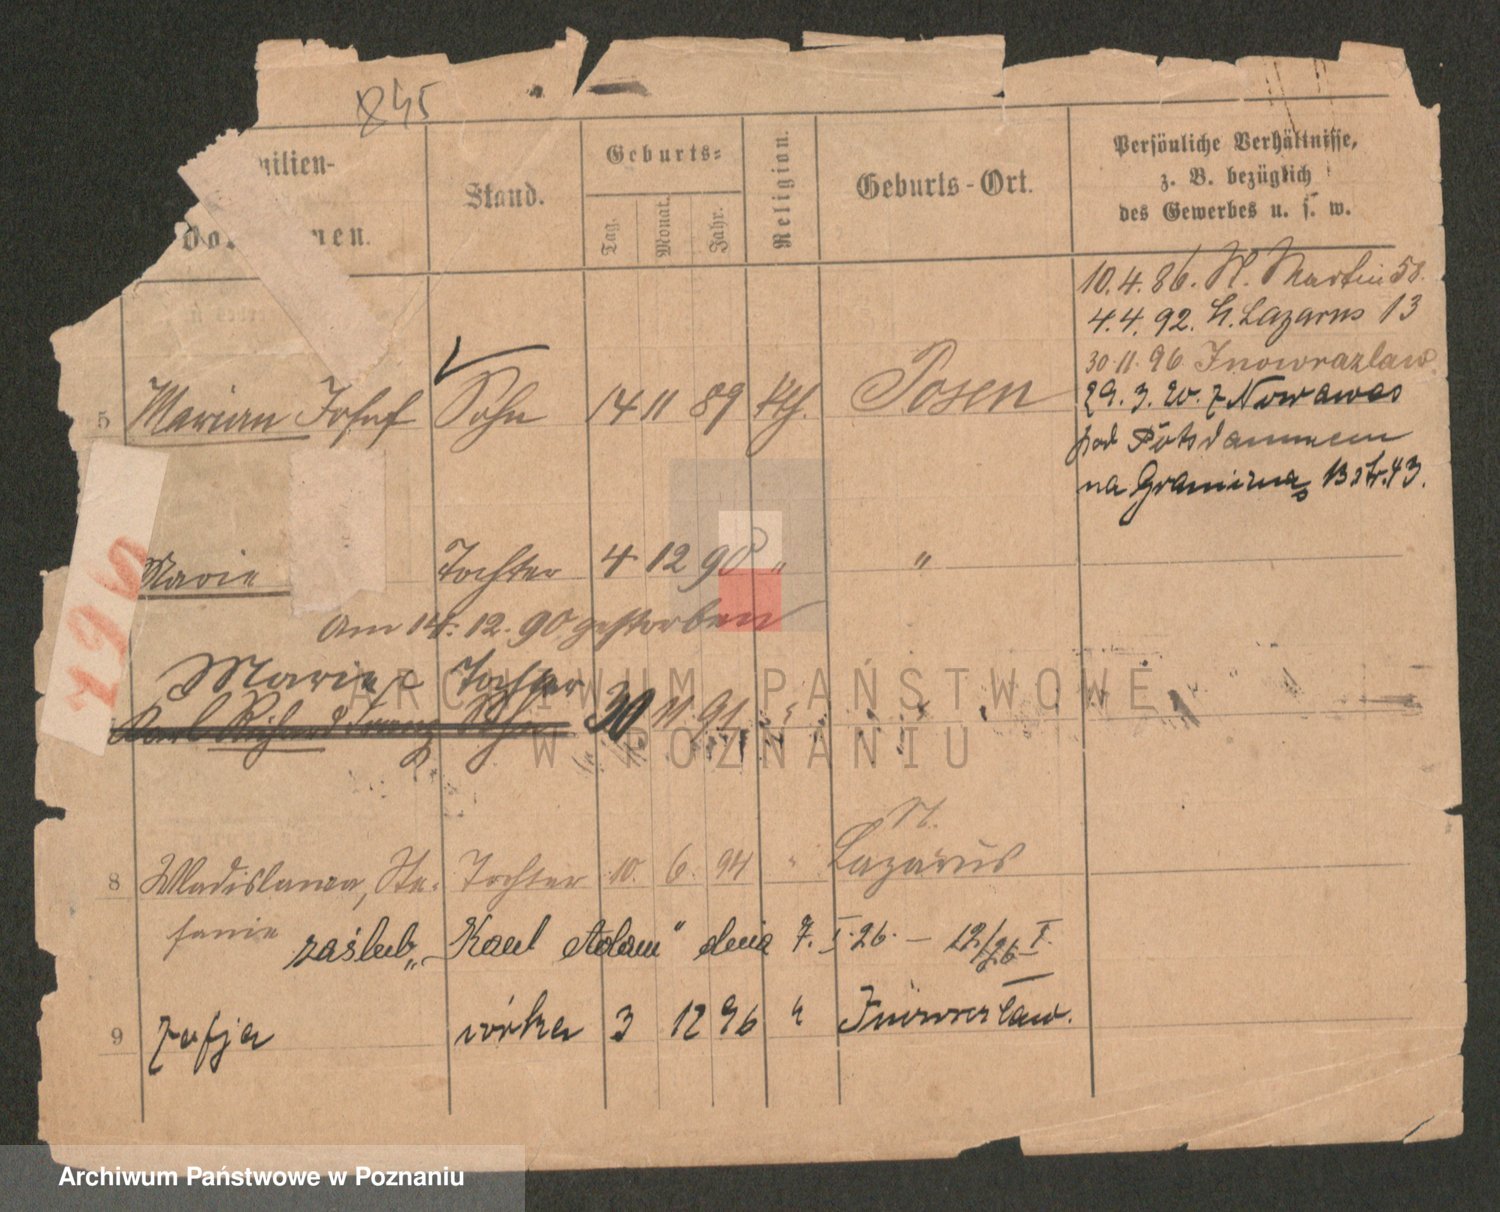 845
milien-
Stand.
Geburts-
Religion.
Geburts-Ort.
Persönliche Verhältnisse,
z. B. bezüglich
des Gewerbes u. s. w.
Vo men.
Tag.
Monat.
Jahr.
10.4.86. St. Martin 58.
4.4.92. St. Lazarus 13
30.11.96 Inowrazlaw.
29.3.20. z Nowawes
pod Potsdammem
na Graniczna 13 str. 43.
5 Marian Josef Sohn 14 11 89 kth. Posen
1190
Marie Tochter 4 12 90 " "
Am 14. 12. 90 gestorben
Marie Tochter
Karl Richard Franz Sohn 30 11 91 "
St.
8 Wladislawa, Ste- Tochter 10. 6. 94 " Lazarus
fanie
zaślub. „Kaul Adam" dnia 7. I. 26. — 12/26 I.
9 Zofja córka 3 12 96 " Inowrocław.
ARCHIWUM PAŃSTWOWE
W POZNANIU
Archiwum Państwowe w Poznaniu